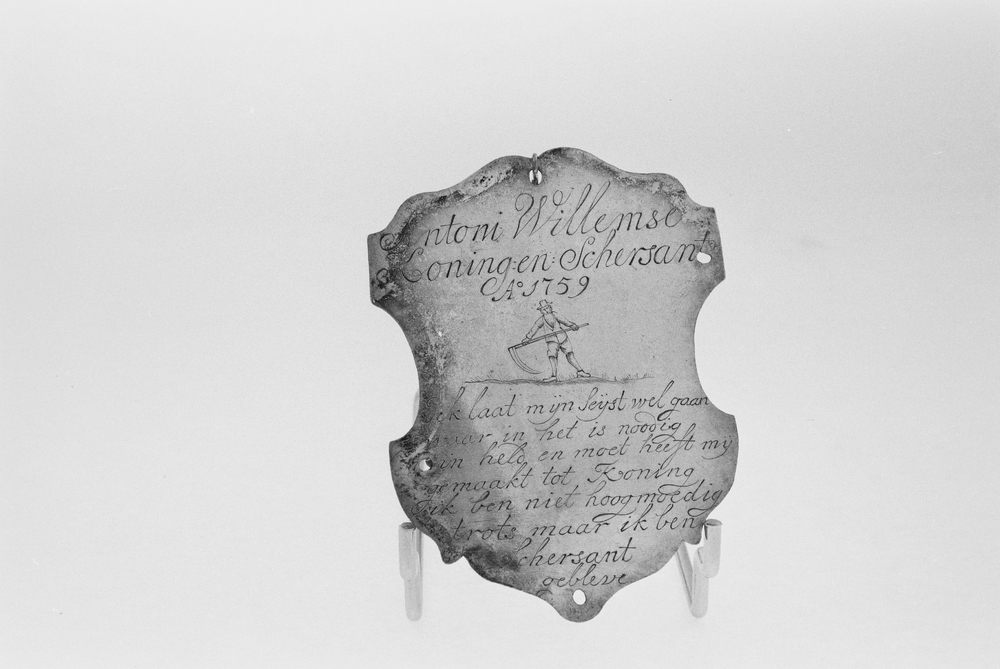 Antoni Willemse
Koning:en:Schersant
Aº1759
ik laat mijn seijst wel gaan
waar in het is noodig
mijn held en moet heeft mij
gemaakt tot Koning
ik ben niet hoogmoedig
trots maar ik ben
Schersant
gebleve